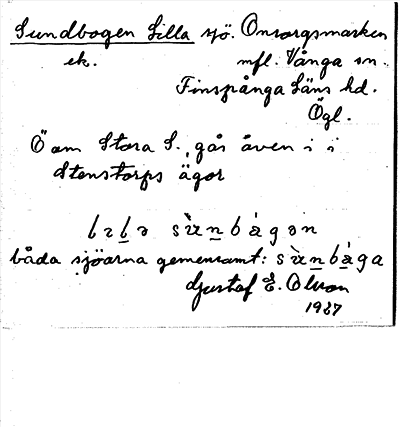 Sundbogen Lilla sjö. Onsorgsmarken
ek. mfl. Vånga sn.
Finspånga Läns hd.
Ögl.
Ö om Stora S., går även i i
Stenstorps ägor
båda sjöarna gemensamt:
Gustaf E. Olsson
1937